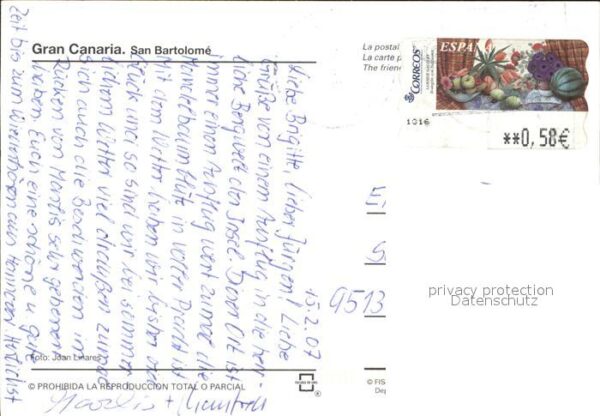 Gran Canaria. San Bartolomé
La postal
La carte p
The friend
CORREOS
ESPAÑ
1016
**0,58€
15.2.07
Liebe Brigitte, lieber Jürgen! Liebe
Grüße von einem Ausflug in die herr-
liche Bergwelt der Insel. Dieser Ort ist
immer einen Ausflug wert zumal die
Mandelbaumblüte in voller Pracht ist
Mit dem Wetter haben wir bisher
Glück und so sind wir bei
Wetter viel draußen zumal
sich auch die Beschwerden im
Rücken von sehr gebessert
haben. Euch eine schöne u. gute
Zeit bis zum Wiedersehen
9513
privacy protection
Datenschutz
Foto: Joan Linares
© PROHIBIDA LA REPRODUCCION TOTAL O PARCIAL
®
© FIS
Dep
+ Manfred